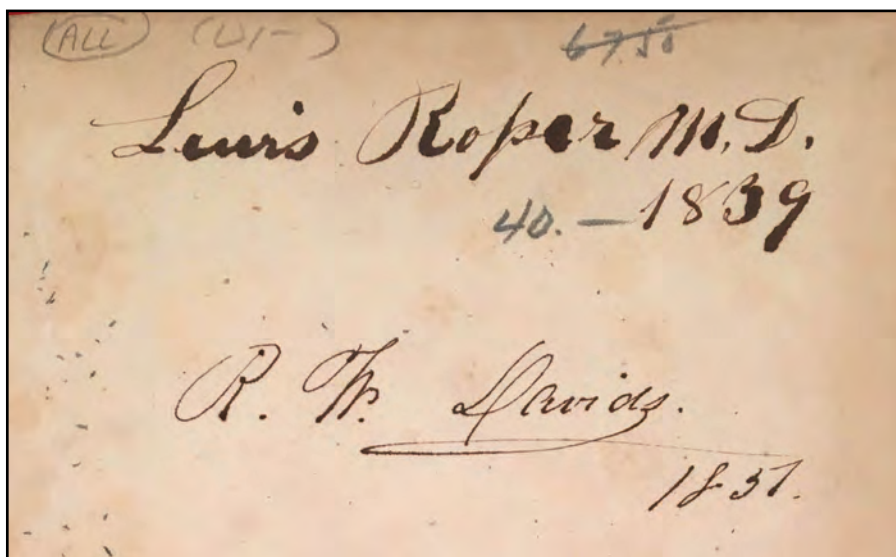 (ALL)
6750
Lewis Roper M.D.
40. — 1839
R. W. Davids.
1837.